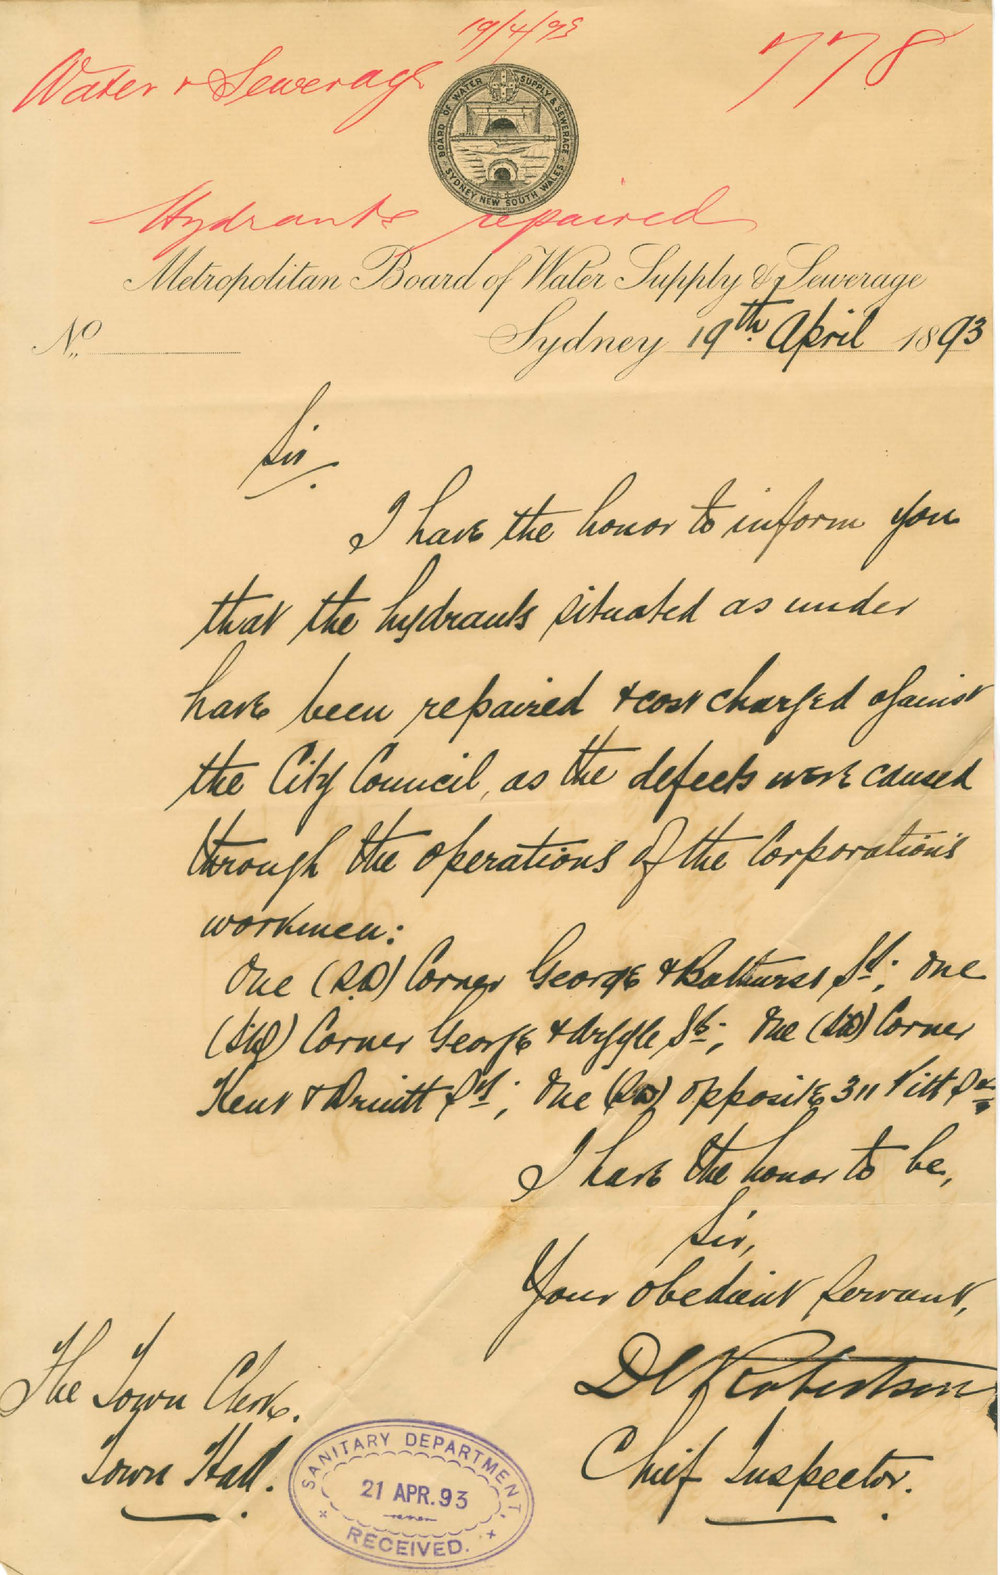 19/4/93
Water & Sewerage
778
BOARD OF WATER SUPPLY & SEWERAGE
SYDNEY, NEW SOUTH WALES
Hydrants repaired
Metropolitan Board of Water Supply & Sewerage
No.
Sydney 19th April 1893
Sir,
I have the honor to inform you
that the hydrants situated as under
have been repaired & cost charged against
the City Council, as the defects were caused
through the operations of the Corporation's
workmen:
One Corner George & Bathurst St; One
Corner George & Argyle St; One Corner
Kent & Druitt St; One opposite 311 Pitt St
I have the honor to be,
Sir,
Your obedient servant,
Robertson
Chief Inspector.
The Town Clerk.
Town Hall.
SANITARY DEPARTMENT,
21 APR. 93
RECEIVED.